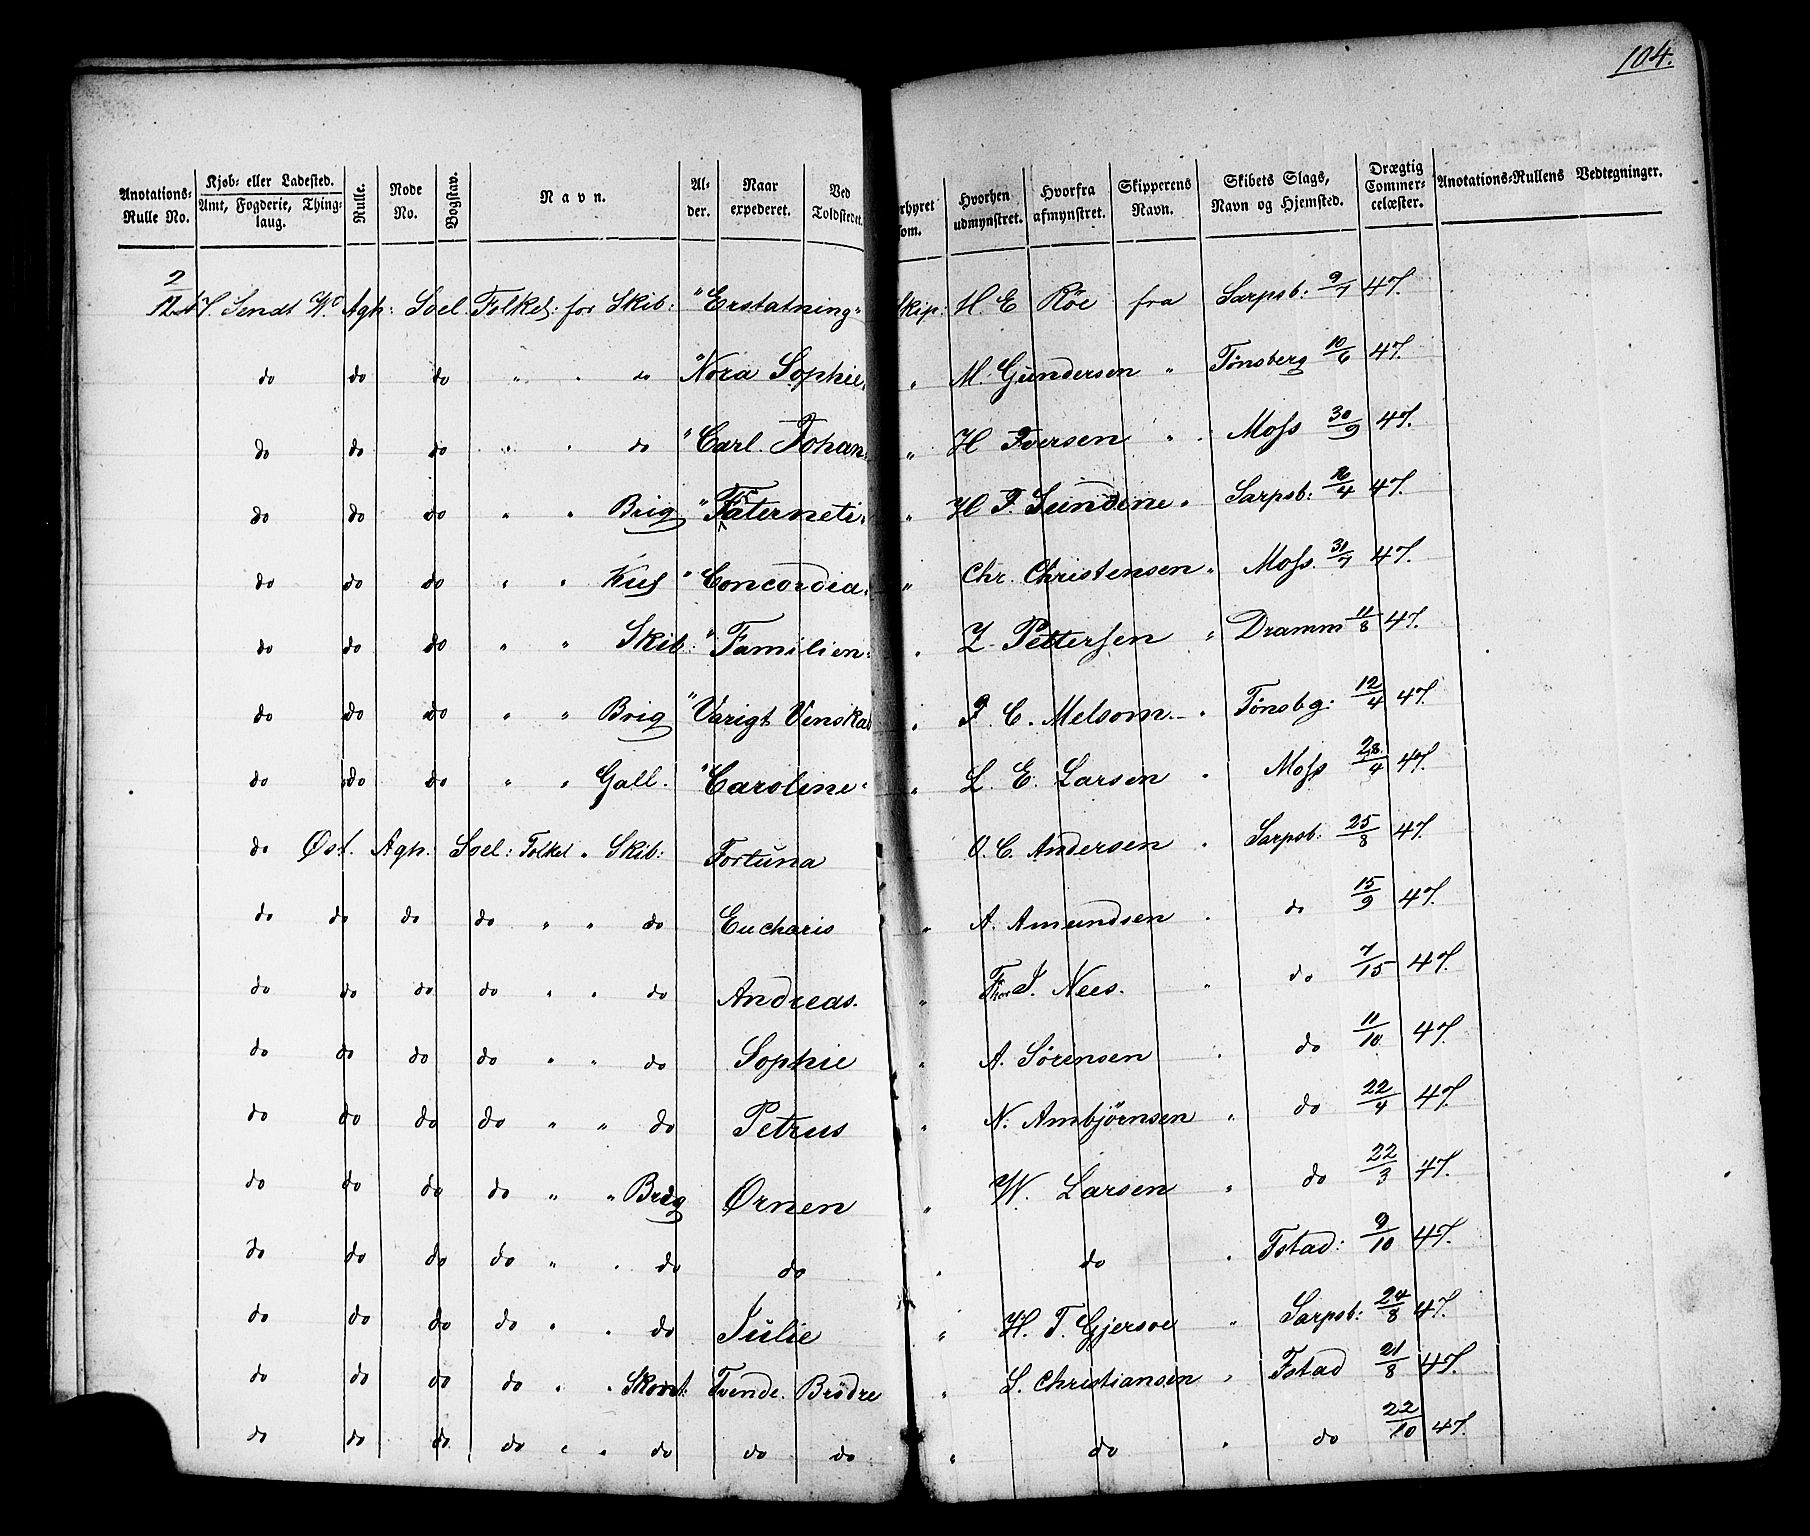 104.
Anotations-Rulle No. Kjøb- eller Ladested. Amt, Fogderie, Thinglaug. Rulle. Node No. Bogstav. Navn. Alder. Naar expederet. Ved Toldstedet. Hvorhen udmynstret. Hvorfra afmynstret. Skipperens Navn. Skibets Slags, Navn og Hjemsted. Drægtig Commercelæster. Anotations-Rullens Vedtegninger.
Sendt Agh: Soel Folket: for Skib: "Erstatning" Skip: H. E Röe fra Sarpsb: 9/7 47.
do do do " " do "Nora Sophie" " M. Gundersen " Tønsberg 10/6 47.
do do do " " do "Carl Johan " H Iversen " Moss 30/9 47.
do do do " " Brig " H J. Sundene " Sarpsb: 47.
do do do " " Kuf "Concordia" " Chr. Christensen " Moss 47.
do do do " " Skib: "Familien " Z. Pettersen " Dramm 11/8 47.
do do do " " Brig "Varigt Venskab " J. C. Melsom " Tønsbg: 12/4 47.
do do do " " Gall. "Caroline" " L. E. Larsen " Moss 28/4 47.
do Øst. Agh. Soel: Folket " Skib: Fortuna O. C. Andersen " Sarpsb: 25/8 47.
do do do do " " do Eucharis " A. Amundsen " do 15/9 47.
do do do do " " do Andreas. " J. Nees. " do 7/15 47.
do do do do " " do Sophie " A. Sørensen " do 11/10 47.
do do do do " " do Petrus " N. Ambjörnsen " do 22/4 47.
do do do do " " Brig Ørnen " W. Larsen " do 22/3 47.
do do do do " " do do " do " Fstad: 9/10 47.
do do do do " " do Julie " H. T. Gjersoe " Sarpsb: 24/8 47.
do do do do " " Skont: Tvende Brödre " L. Christiansen " Fstad 21/8 47.
do do do do " " do do do " do " do 22/10 47.